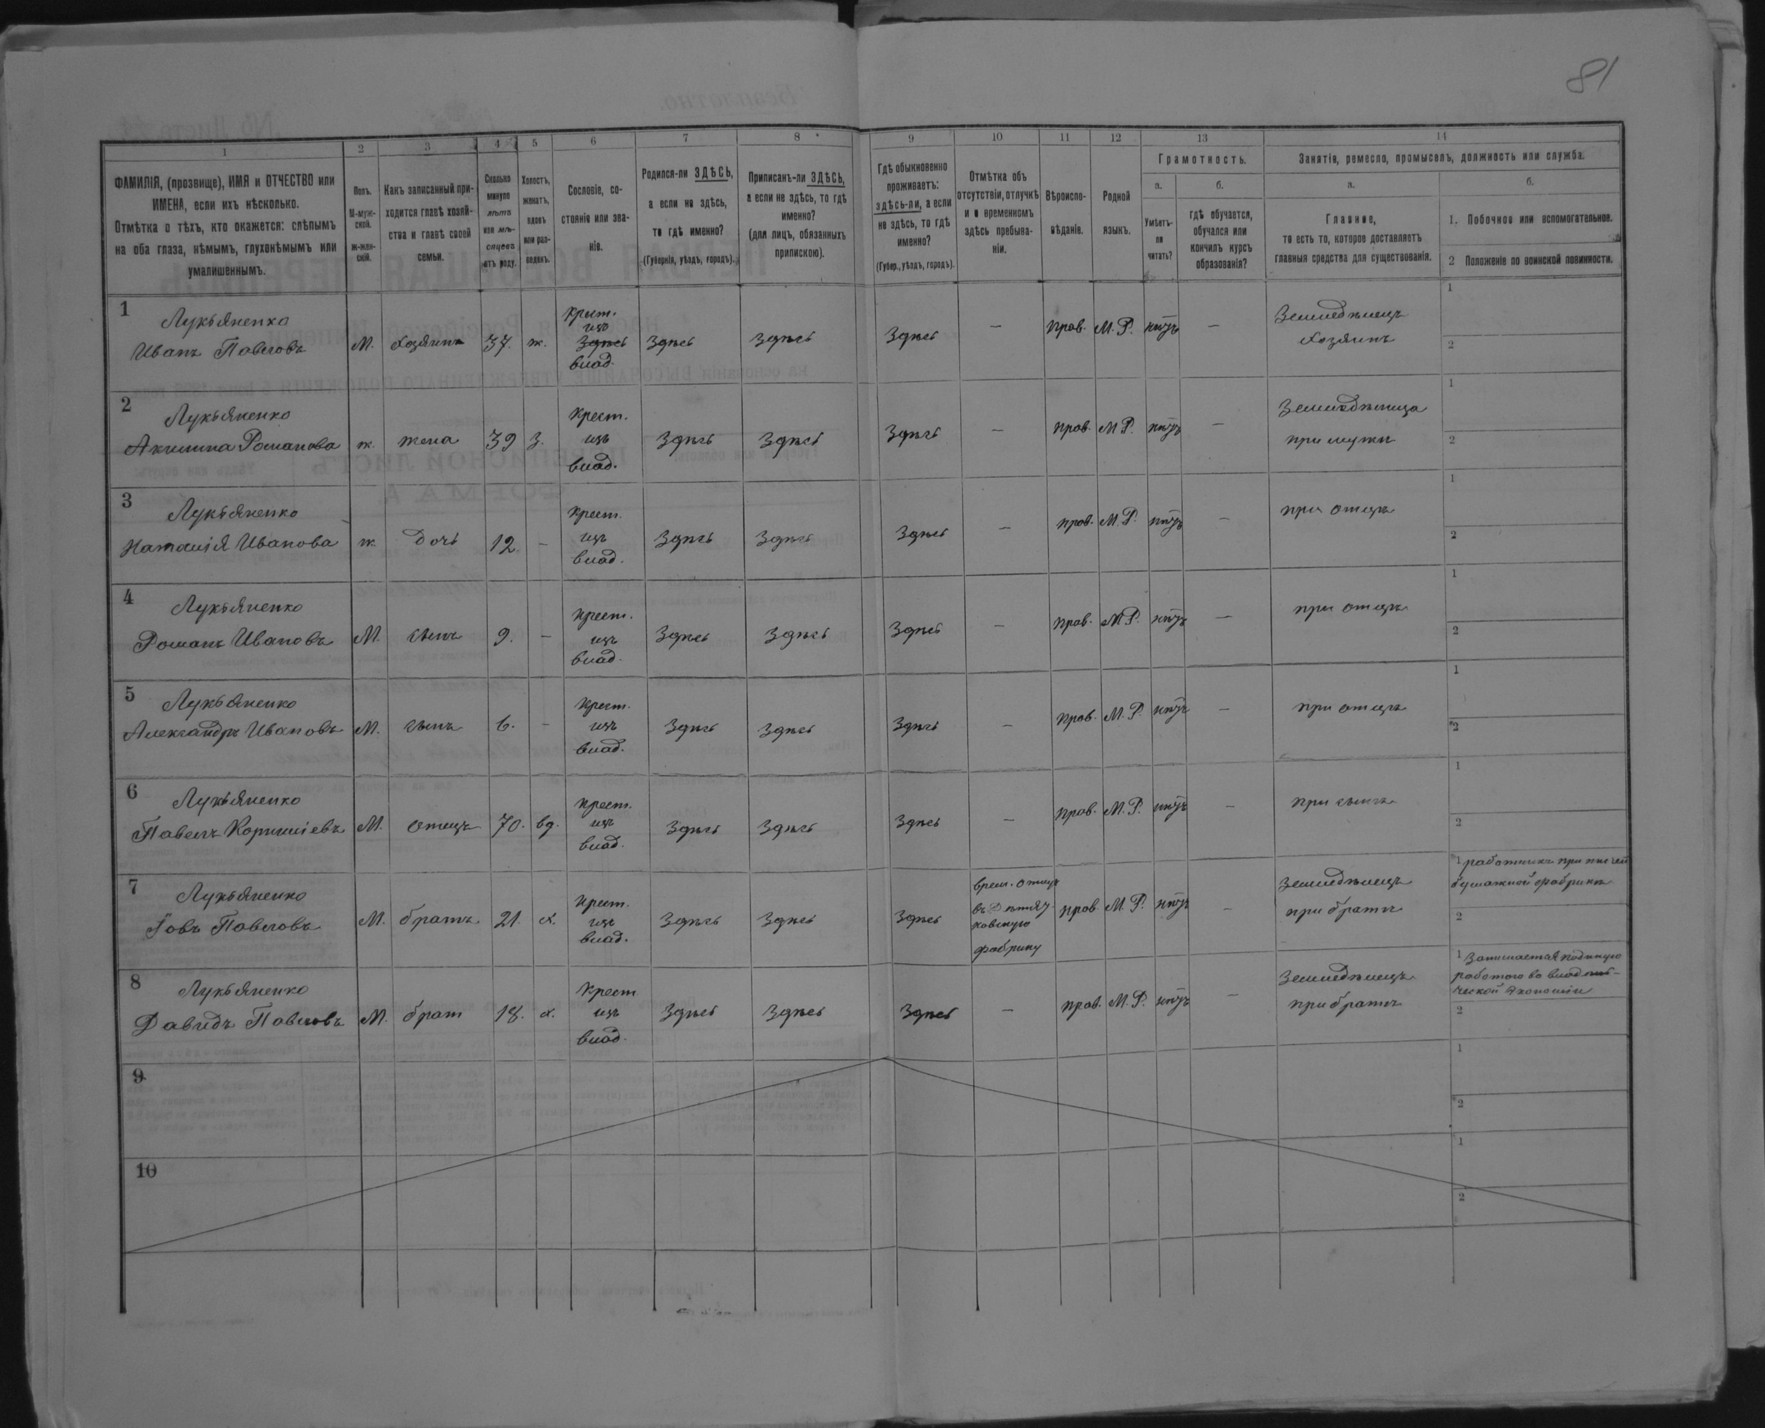 81
1
2
3
4
5
6
7
8
9
10
11
12
13
14
ФАМИЛІЯ, (прозвище), ИМЯ и ОТЧЕСТВО или
ИМЕНА, если ихъ нѣсколько.
Отмѣтка о тѣхъ, кто окажется: слѣпымъ
на оба глаза, нѣмымъ, глухонѣмымъ или
умалишеннымъ.
Полъ.
М-муж-
ской.
ж-жен-
скій.
Какъ записанный при-
ходится главѣ хозяй-
ства и главѣ своей
семьи.
Сколько
минуло
лѣтъ
или мѣ-
сяцевъ
отъ роду.
Холостъ,
женатъ,
вдовъ
или раз-
веденъ.
Сословіе, со-
стояніе или зва-
ніе.
Родился-ли ЗДѢСЬ,
а если не здѣсь,
то гдѣ именно?
(Губернія, уѣздъ, городъ).
Приписанъ-ли ЗДѢСЬ,
а если не здѣсь, то гдѣ
именно?
(для лицъ, обязанныхъ
припискою).
Гдѣ обыкновенно
проживаетъ:
здѣсь-ли, а если
не здѣсь, то гдѣ
именно?
(Губер., уѣздъ, городъ).
Отмѣтка объ
отсутствіи, отлучкѣ
и о временномъ
здѣсь пребыва-
ніи.
Вѣроиспо-
вѣданіе.
Родной
языкъ.
Грамотность.
а.
б.
Умѣетъ-
ли
читать?
гдѣ обучается,
обучался или
кончилъ курсъ
образованія?
Занятія, ремесло, промыселъ, должность или служба.
а.
б.
Главное,
то есть то, которое доставляетъ
главныя средства для существованія.
1. Побочное или вспомогательное.
2 Положеніе по воинской повинности.
1
Лукьяненко
Иванъ Павловъ
М.
хозяинъ
37.
ж.
Крест.
изъ
Здѣсь
влад.
Здѣсь
Здѣсь
Здѣсь
—
прав.
М. Р.
нѣтъ
—
Земледѣлецъ
хозяинъ
1
2
2
Лукьяненко
Акилина Романова
ж.
жена
39
з.
Крест.
изъ
влад.
Здѣсь
Здѣсь
Здѣсь
—
прав.
М. Р.
нѣтъ
—
Земледѣлица
при мужѣ
1
2
3
Лукьяненко
Наталія Иванова
ж
дочь
12.
—
Крест.
изъ
влад.
Здѣсь
Здѣсь
Здѣсь
—
прав.
М. Р.
нѣтъ
—
при отцѣ
1
2
4
Лукьяненко
Романъ Ивановъ
М.
сынъ
9.
—
Крест.
изъ
влад.
Здѣсь
Здѣсь
Здѣсь
—
прав.
М. Р.
нѣтъ
—
при отцѣ
1
2
5
Лукьяненко
Александръ Ивановъ
М.
сынъ
6.
—
Крест.
изъ
влад.
Здѣсь
Здѣсь
Здѣсь
—
прав.
М. Р.
нѣтъ
—
при отцѣ
1
2
6
Лукьяненко
Павелъ Корниліевъ
М.
отецъ
70.
вд.
Крест.
изъ
влад.
Здѣсь
Здѣсь
Здѣсь
—
прав.
М. Р.
нѣтъ
—
при сынѣ
1
2
7
Лукьяненко
Іовъ Павловъ
М.
братъ
21.
х.
Крест.
изъ
влад.
Здѣсь
Здѣсь
Здѣсь
врем.
въ
фабрику
прав.
М. Р.
нѣтъ
—
Земледѣлецъ
при братѣ
1 работникъ при
бумажной фабрикѣ
2
8
Лукьяненко
Давидъ Павловъ
М.
брат
18.
х.
Крест
изъ
влад.
Здѣсь
Здѣсь
Здѣсь
—
прав.
М. Р.
нѣтъ
—
Земледѣлецъ
при братѣ
1 Занимается
работою во
экономіи
2
9
1
2
10
1
2